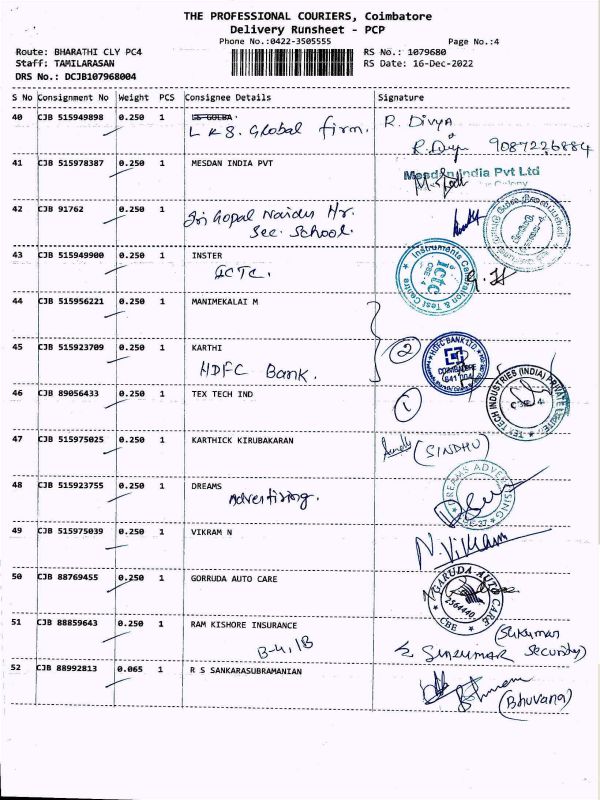 THE PROFESSIONAL COURIERS, Coimbatore
Delivery Runsheet - PCP
Phone No.:0422-3505555 Page No.:4
Route: BHARATHI CLY PC4 RS No.: 1079680
Staff: TAMILARASAN RS Date: 16-Dec-2022
DRS No.: DCJB107968004
S No Consignment No Weight PCS Consignee Details Signature
40 CJB 515949898 0.250 1 R. Divya
L & S. Global firm. 9087226884
41 CJB 515978387 0.250 1 MESDAN INDIA PVT
Mesdan India Pvt Ltd
42 CJB 91762 0.250 1 Sri Gopal Naidu Hr.
Sec. School.
43 CJB 515949900 0.250 1 INSTER
ICTC.
Instruments Calibration & Test Centre
ctc
44 CJB 515956221 0.250 1 MANIMEKALAI M
45 CJB 515923709 0.250 1 KARTHI
HDFC Bank. 2
HDFC BANK LTD.
COIMBATORE
641 004
46 CJB 89056433 0.250 1 TEX TECH IND
1
TEX TECH INDUSTRIES (INDIA) PRIVATE LIMITED
47 CJB 515975025 0.250 1 KARTHICK KIRUBAKARAN
(SINDHU)
48 CJB 515923755 0.250 1 DREAMS
Advertising.
DREAMS ADVERTISING
49 CJB 515975039 0.250 1 VIKRAM N
N. Vikram
50 CJB 88769455 0.250 1 GORRUDA AUTO CARE
GARUDA AUTO CARE
2564440
CBE
51 CJB 88859643 0.250 1 RAM KISHORE INSURANCE
B-4, 1B
(Sukumar
Security)
52 CJB 88992813 0.065 1 R S SANKARASUBRAMANIAN
(Bhuvana)